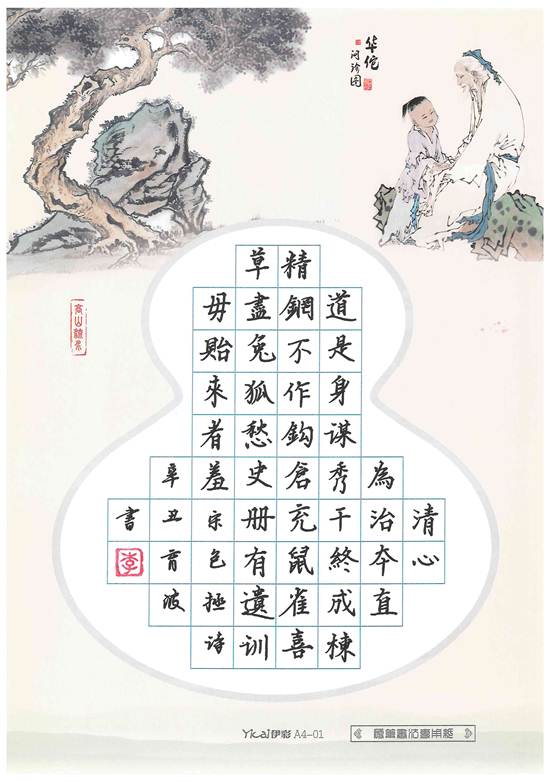 华佗
问诊图
高山流水
清心
為治夲直
道是身謀秀干終成棟
精鋼不作鈎倉充鼠雀喜
草盡兔狐愁史册有遺训
毋貽來者羞宋包拯诗
辛丑育波
書
李
Ykai伊彩 A4-01